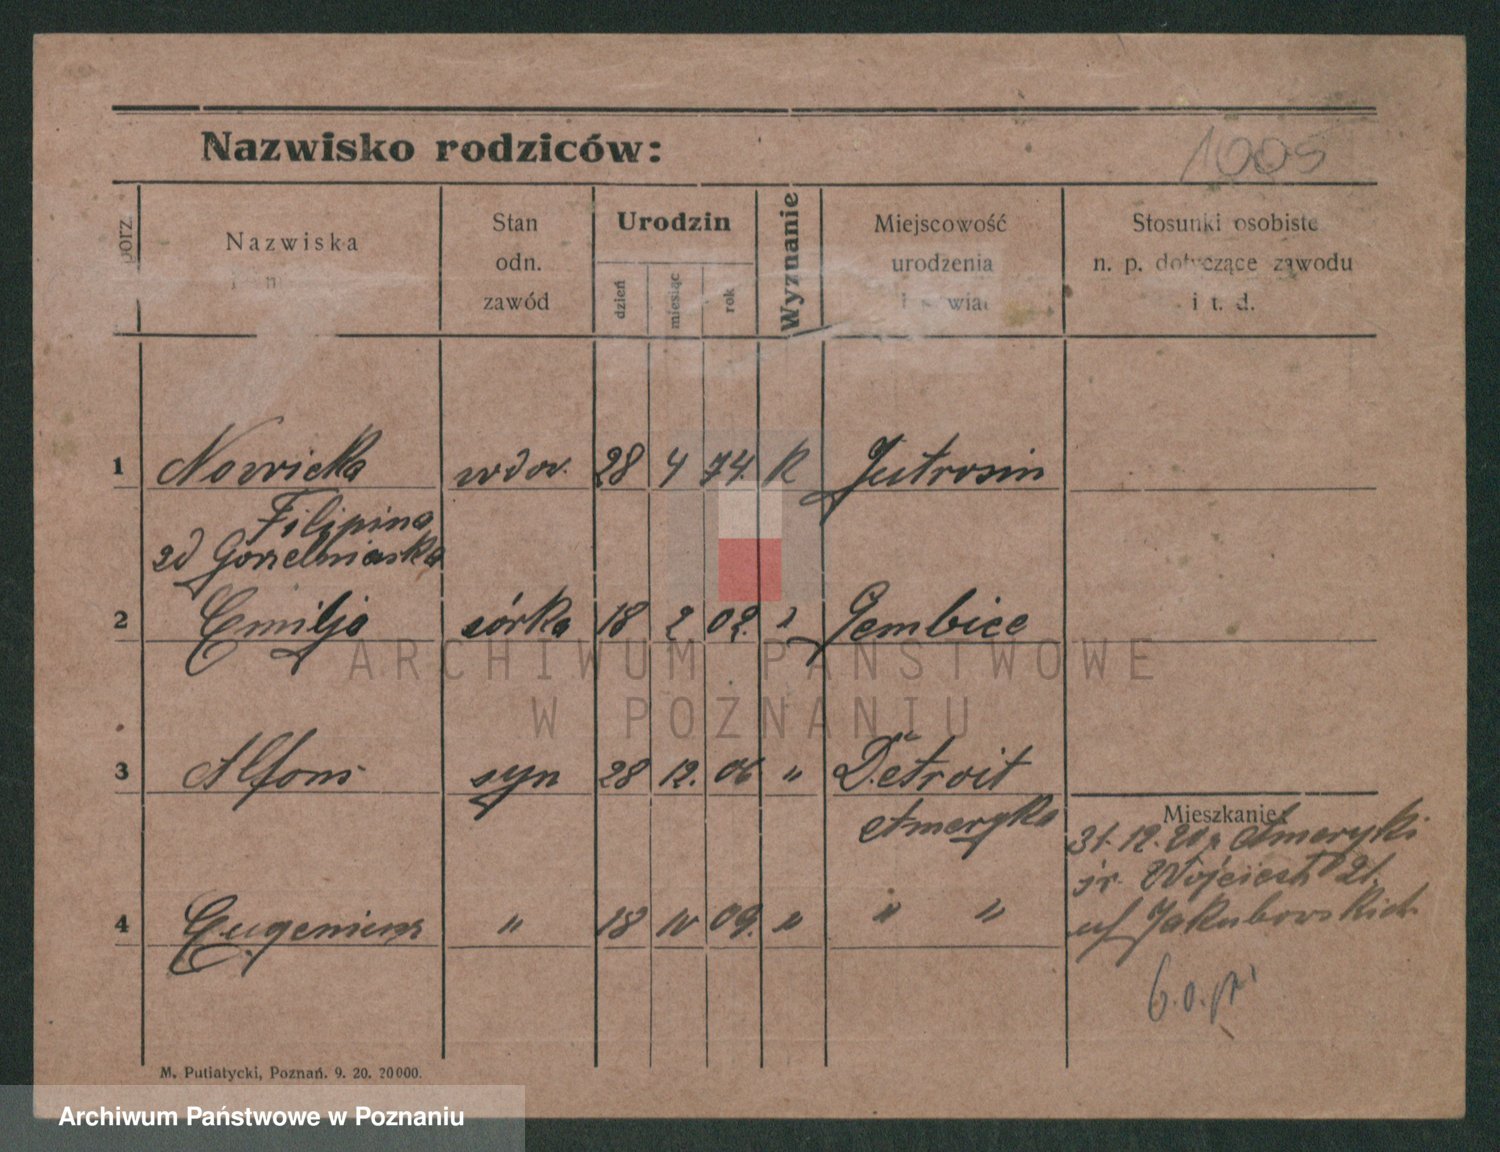 Nazwisko rodziców:
1005
porz
Nazwiska
Stan
odn.
zawód
Urodzin
dzień
miesiąc
rok
Wyznanie
Miejscowość
urodzenia
Stosunki osobiste
n. p. dotyczące zawodu
i t. d.
1 Nowicka wdow. 28 4 74. K Jutrosin
Filipina
zd Gorzelniaska
2 Emilja córka 18 2 02. " Gembice
ARCHIWUM PAŃSTWOWE
W POZNANIU
3 Alfons syn 28 12. 06 " Detroit
Ameryka
Mieszkanie:
31.12.20 z Ameryki
śr. Wojciech 21.
u Jakubowskich
4 Eugeniusz " 18 IV 09. " " "
M. Putiatycki, Poznań. 9. 20. 20000.
Archiwum Państwowe w Poznaniu